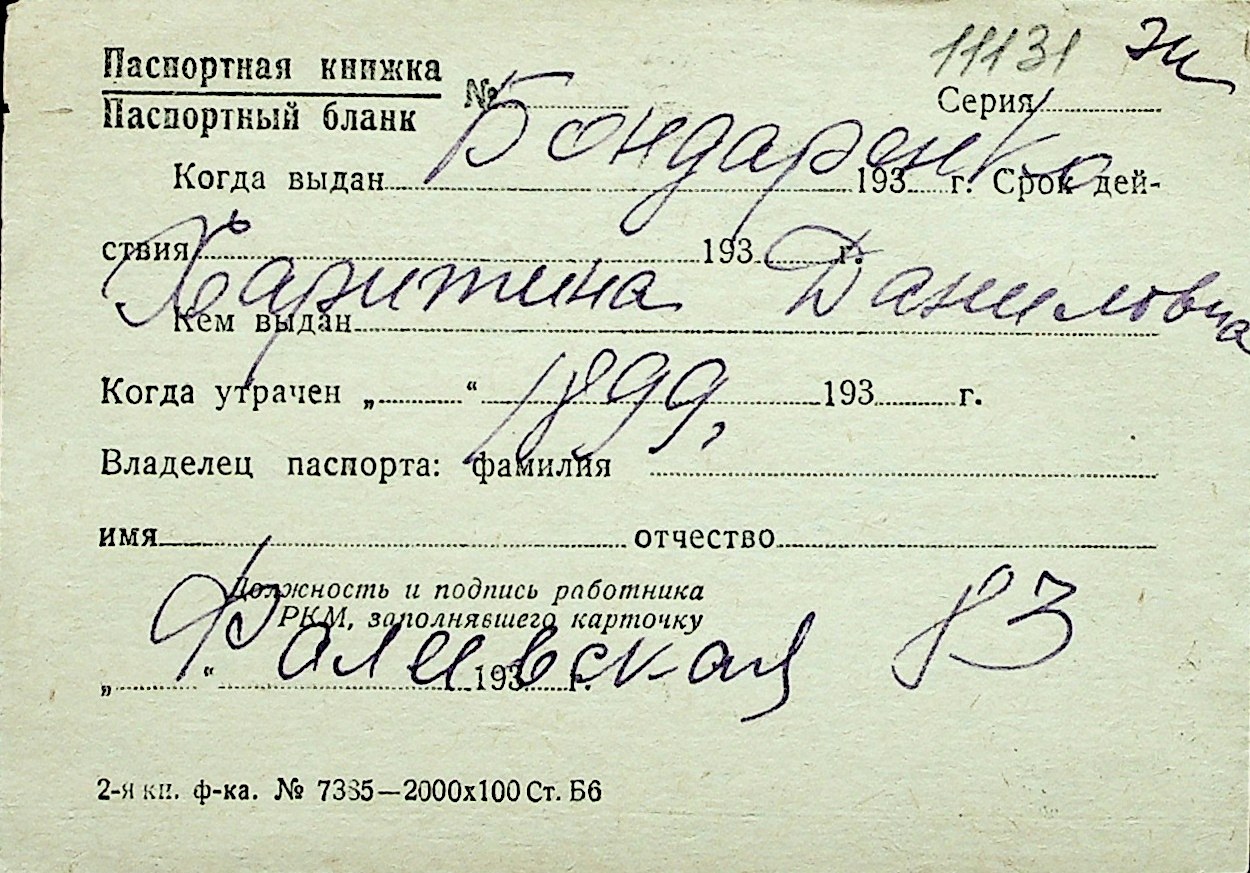 11131 Эк
Паспортная книжка
Паспортный бланк
№ Серия
Бондаренко
Когда выдан 193 г. Срок дей-
ствия 193 г.
Харитина Даниловна
Кем выдан
1899,
Когда утрачен „ “ 193 г.
Владелец паспорта: фамилия
имя отчество
Должность и подпись работника
РКМ, заполнявшего карточку
Фалевская 83
„ “ 193 г.
2-я кн. ф-ка. № 7385—2000х100 Ст. Б6